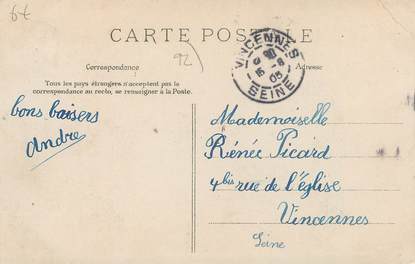 6€
CARTE POSTALE
92
VINCENNES
15 -8
05
SEINE
Correspondance
Adresse
Tous les pays étrangers n'acceptent pas la
correspondance au recto, se renseigner à la Poste.
bons baisers
André
Mademoiselle
Rénée Picard
4 bis rue de l'église
Vincennes
Seine